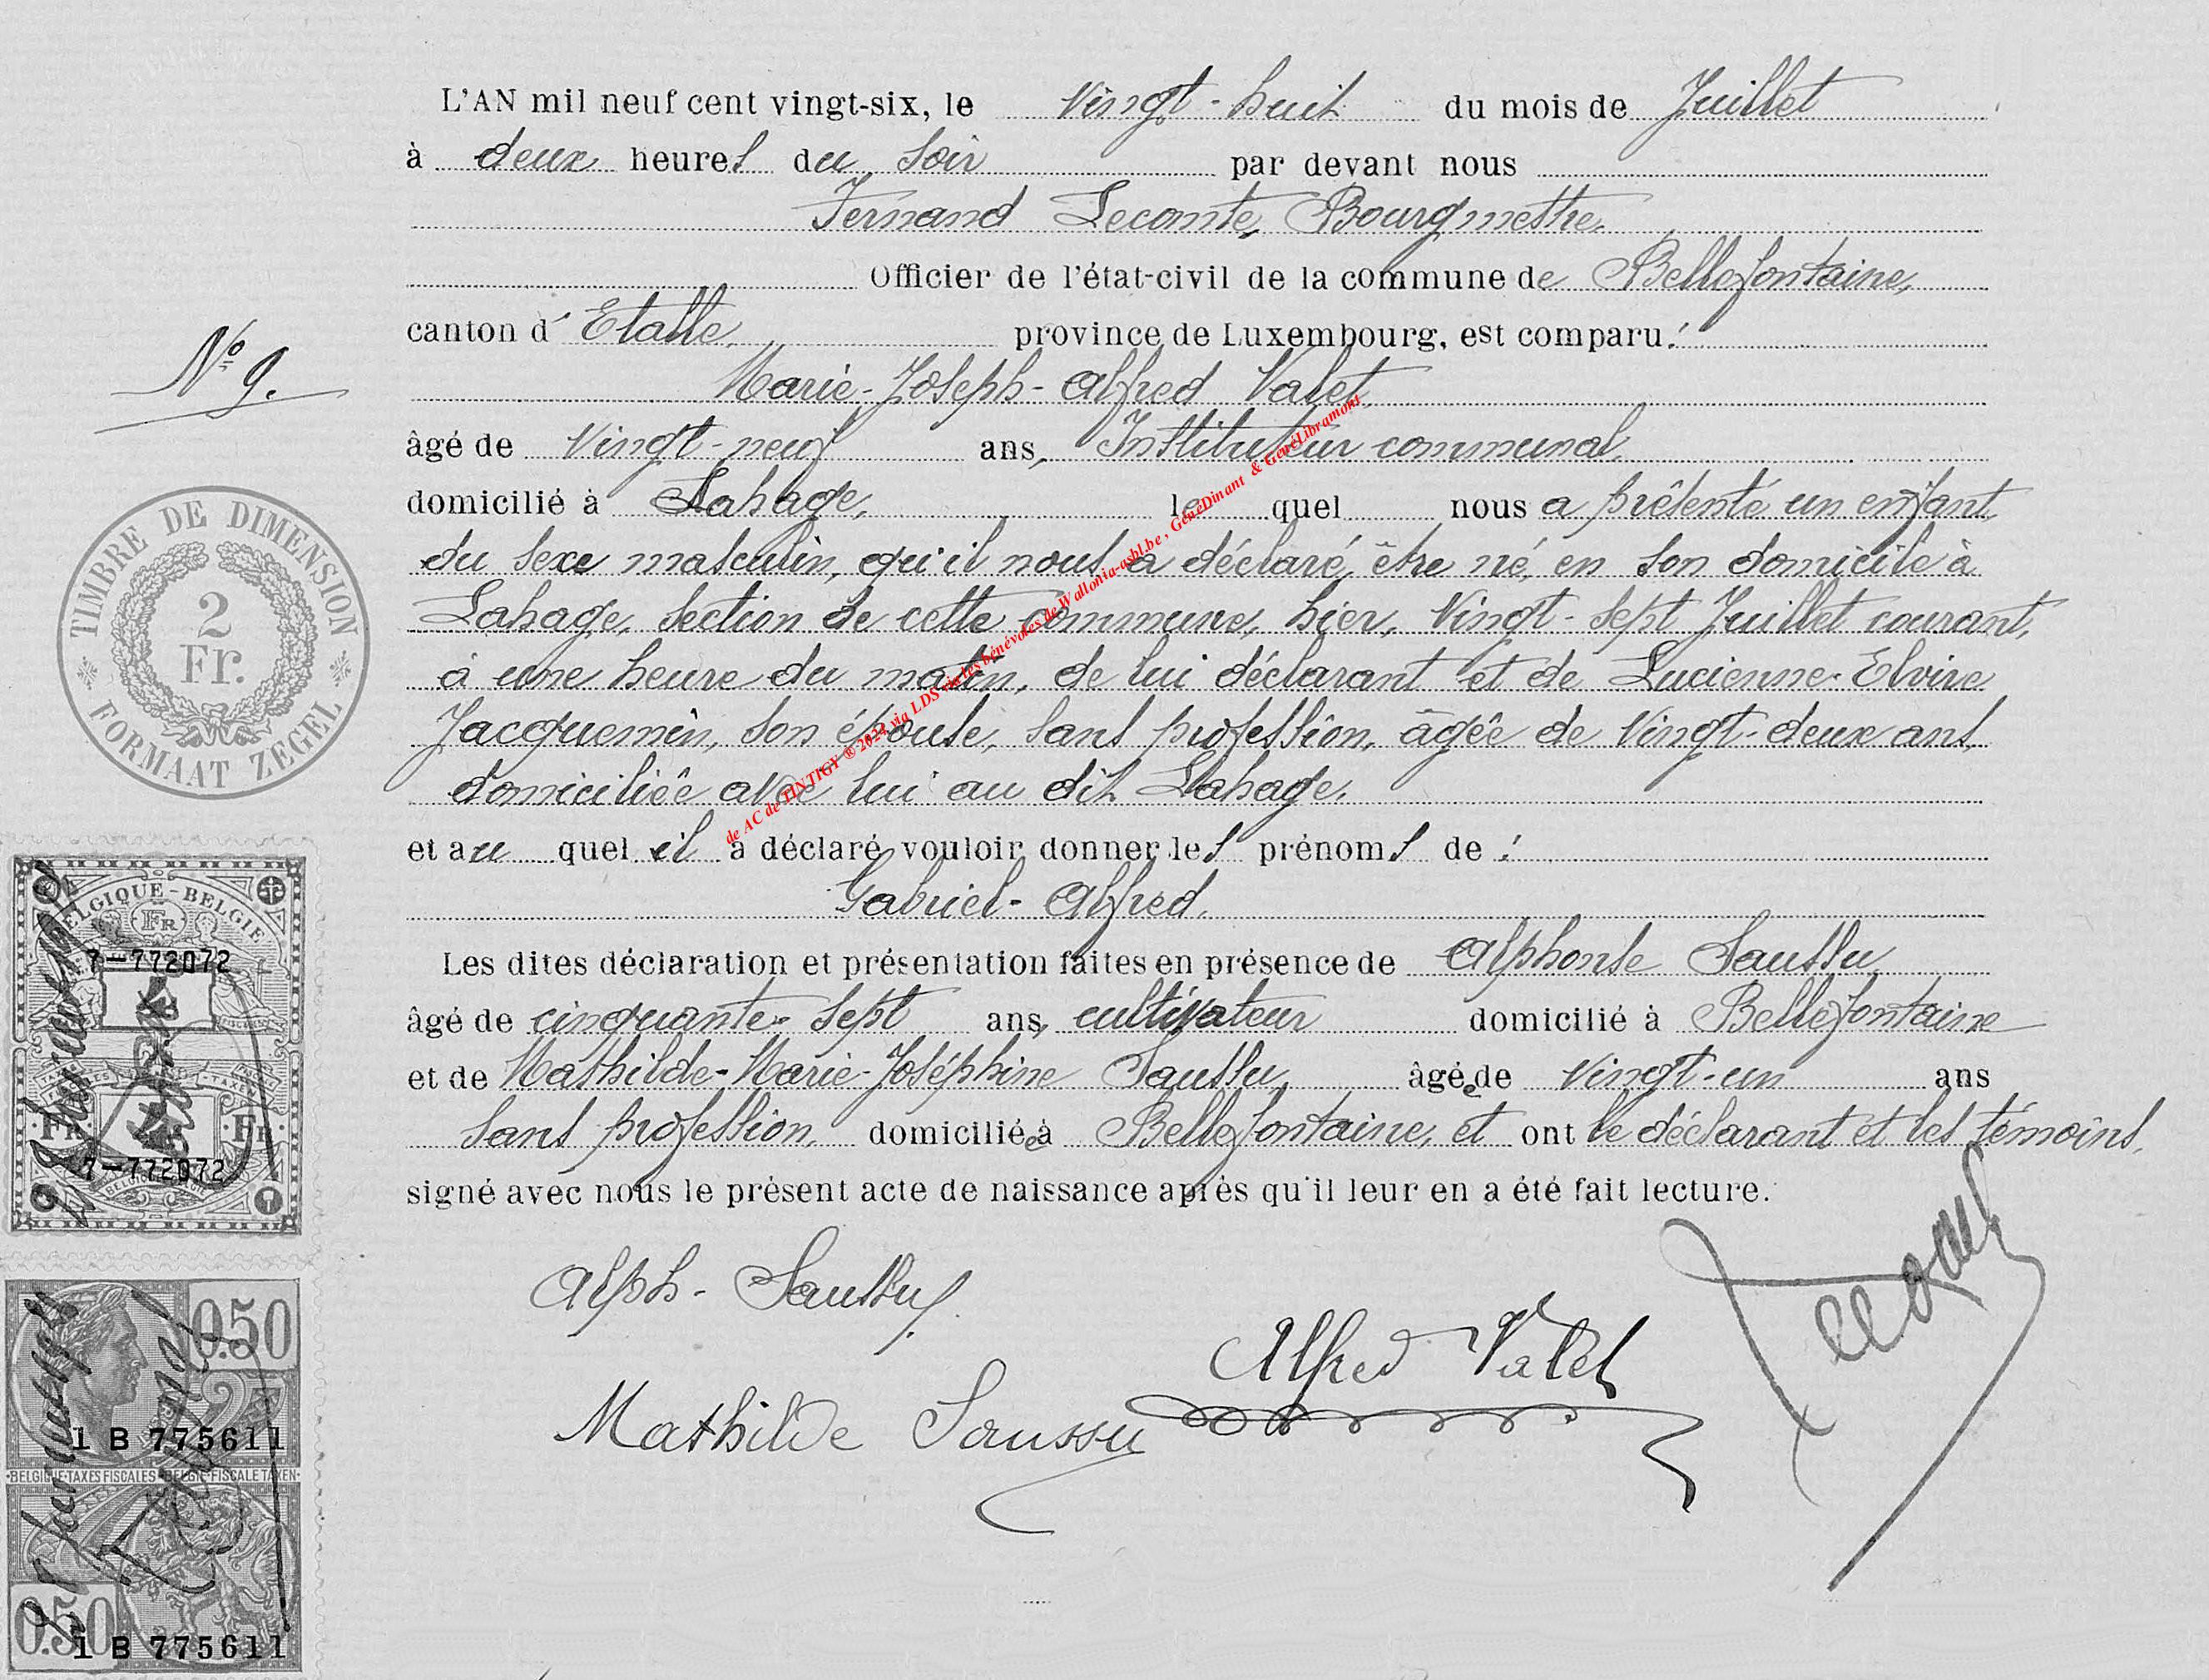 L'AN mil neuf cent vingt-six, le Vingt-huit du mois de Juillet
à deux heures du soir par devant nous
Fernand Lecomte, Bourgmestre.
Officier de l'état-civil de la commune de Bellefontaine,
canton d' Etalle, province de Luxembourg, est comparu:
Marie-Joseph-Alfred Valet,
âgé de Vingt-neuf ans, Instituteur communal,
domicilié à Lahage, le quel nous a présenté un enfant
du sexe masculin, qu'il nous a déclaré être né, en son domicile à
Lahage, section de cette commune, hier, Vingt-sept Juillet courant,
à une heure du matin, de lui déclarant et de Lucienne-Elvire
Jacquemin, son épouse, sans profession, âgée de Vingt-deux ans,
domiciliée avec lui au dit Lahage.
et au quel il a déclaré vouloir donner les prénoms de :
Gabriel-Alfred.
Les dites déclaration et présentation faites en présence de Alphonse Saussu,
âgé de cinquante-sept ans, cultivateur domicilié à Bellefontaine
et de Mathilde-Marie-Joséphine Saussu, âgée de Vingt-un ans
sans profession, domiciliée à Bellefontaine, et ont le déclarant et les témoins,
signé avec nous le présent acte de naissance après qu'il leur en a été fait lecture.
Alph-Saussu
Alfred Valet
Mathilde Saussu
N° 9.
TIMBRE DE DIMENSION
2
Fr.
FORMAAT ZEGEL
BELGIQUE-BELGIE
FR
7-772072
FR. FR.
7-772072
0.50
1 B 775611
BELGIQUE-TAXES FISCALES-BELGIE-FISCALE TAXEN
0.50
1 B 775611
de AC de TINTIGY ® 2022 via LDS via les bénévoles de Wallonia-asbl.be, GénéDinant & GénéLibramont